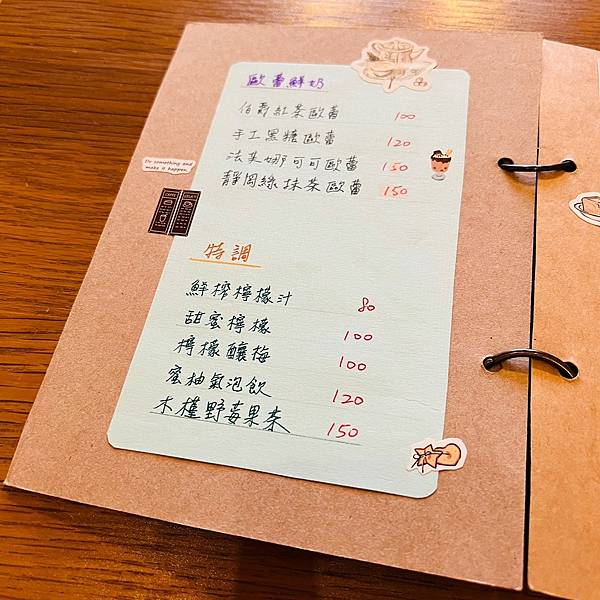 歐蕾鮮奶
伯爵紅茶歐蕾 100
手工黑糖歐蕾 120
法芙娜可可歐蕾 150
靜岡綠抹茶歐蕾 150
Do something and
make it happen.
特調
鮮榨檸檬汁 80
甜蜜檸檬 100
檸檬釀梅 100
蜜柚氣泡飲 120
木槿野莓果茶 150